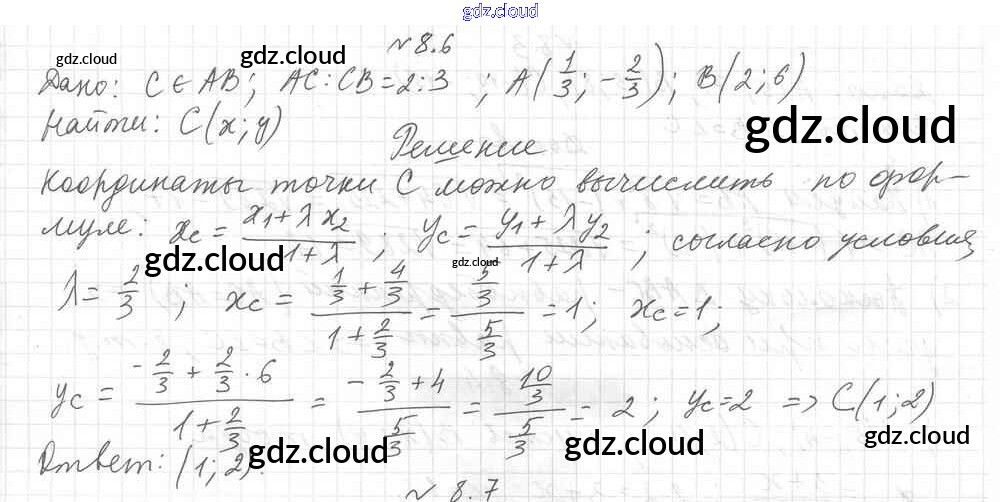 gdz.cloud
№ 8.6
gdz.cloud gdz.cloud
Дано: C ∈ AB; AC : CB = 2 : 3 ; A(1/3; -2/3); B(2; 6)
Найти: C(x; y) gdz.cloud
Решение
Координаты точки C можно вычислить по фор-
муле: x_C = (x_1 + λx_2)/(1 + λ); y_C = (y_1 + λy_2)/(1 + λ); согласно условия
gdz.cloud gdz.cloud gdz.cloud
λ = 2/3; x_C = (1/3 + 4/3)/(1 + 2/3) = (5/3)/(5/3) = 1; x_C = 1;
y_C = (-2/3 + 2/3 · 6)/(1 + 2/3) = (-2/3 + 4)/(5/3) = (10/3)/(5/3) = 2; y_C = 2 => C(1; 2)
gdz.cloud gdz.cloud gdz.cloud
Ответ: (1; 2).
№ 8.7